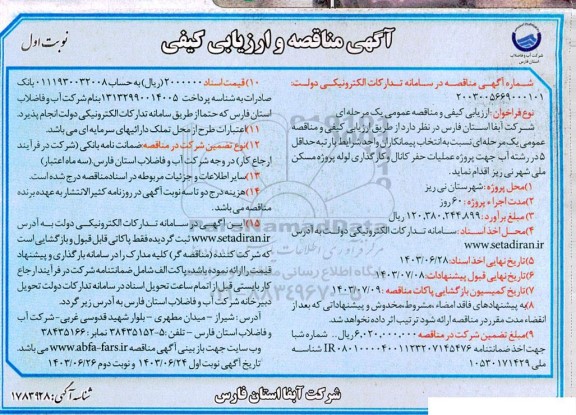 آگهی مناقصه و ارزیابی کیفی
نوبت اول
شرکت آب و فاضلاب
استان فارس
شماره آگهی مناقصه در سامانه تدارکات الکترونیکی دولت:
۲۰۰۳۰۰۵۶۶۹۰۰۰۱۰۱
نوع فراخوان: ارزیابی کیفی و مناقصه عمومی یک مرحله ای
شرکت آبفا استان فارس در نظر دارد از طریق ارزیابی کیفی و مناقصه
عمومی یک مرحله ای نسبت به انتخاب پیمانکاران واجد شرایط با رتبه حداقل
۵ در رشته آب جهت پروژه عملیات حفر کانال و کارگذاری لوله پروژه مسکن
ملی شهر نی ریز اقدام نماید.
۱) محل پروژه: شهرستان نی ریز
۲) مدت اجراء پروژه: ۶۰ روز
۳) مبلغ برآورد: ۱۲۰.۳۸۰.۲۴۴.۸۹۹ ریال
۴) محل اخذ اسناد: سامانه تدارکات الکترونیکی دولت به آدرس
www.setadiran.ir
۵) تاریخ نهایی اخذ اسناد: ۱۴۰۳/۰۶/۲۸
۶) تاریخ نهایی قبول پیشنهادات: ۱۴۰۳/۰۷/۰۸
۷) تاریخ کمیسیون بازگشایی پاکات مناقصه: ۱۴۰۳/۰۷/۰۹
۸) به پیشنهادهای فاقد امضاء، مشروط، مخدوش و پیشنهاداتی که بعد از
انقضاء مدت مقرر در مناقصه ارائه شود ترتیب اثر داده نخواهد شد.
۹) مبلغ تضمین شرکت در مناقصه: ۶.۰۲۰.۰۰۰.۰۰۰ ریال.. شماره شبا
جهت اخذ ضمانتنامه IR۰۸۰۱۰۰۰۰۴۰۰۱۱۲۳۲۰۷۱۴۵۴۷۶ شناسه
ملی ۱۰۵۳۰۱۷۱۴۲۹
۱۰) قیمت اسناد: ۲۰۰۰۰۰۰ (ریال) به حساب ۰۱۱۱۹۳۰۰۳۲۰۰۸ بانک
صادرات به شناسه پرداخت ۱۳۱۳۲۹۹۰۰۱۴۰۰۵ بنام شرکت آب و فاضلاب
استان فارس که حتما از طریق سامانه تدارکات الکترونیکی دولت انجام پذیرد.
۱۱) اعتبارات طرح از محل تملک دارائیهای سرمایه ای می باشد.
۱۲) نوع تضمین شرکت در مناقصه: ضمانت نامه بانکی (شرکت در فرآیند
ارجاع کار) در وجه شرکت آب و فاضلاب استان فارس (سه ماه اعتبار)
۱۳) سایر اطلاعات و جزئیات مربوطه در اسناد مناقصه درج شده است.
۱۴) هزینه درج دو تا سه نوبت آگهی در روزنامه کثیرالانتشار به عهده برنده
مناقصه می باشد.
۱۵) این آگهی در سامانه تدارکات الکترونیکی دولت به آدرس
www.setadiran.ir ثبت گردیده فقط پاکاتی قابل قبول و بازگشایی است
که شرکت کننده (مناقصه گر) کلیه مدارک را در سامانه بارگذاری و پیشنهاد
قیمت را ارائه نموده باشد، پاکت الف شامل ضمانتنامه شرکت در فرآیند ارجاع
کار بایستی قبل از اتمام ساعت تحویل اسناد در سامانه تدارکات دولت تحویل
دبیرخانه شرکت آب و فاضلاب استان فارس به آدرس زیر گردد.
آدرس: شیراز – میدان مطهری – بلوار شهید قدوسی غربی – شرکت آب
و فاضلاب استان فارس – تلفن: ۵-۳۸۴۳۵۱۵۲ نمابر: ۳۸۴۳۵۱۶۶
وب سایت جهت باز بینی آگهی مناقصه www.abfa-fars.ir می باشد.
تاریخ آگهی نوبت اول ۱۴۰۳/۰۶/۲۴ و نوبت دوم ۱۴۰۳/۰۶/۲۶
شرکت آبفا استان فارس
شناسه آگهی: ۱۷۸۳۹۲۸